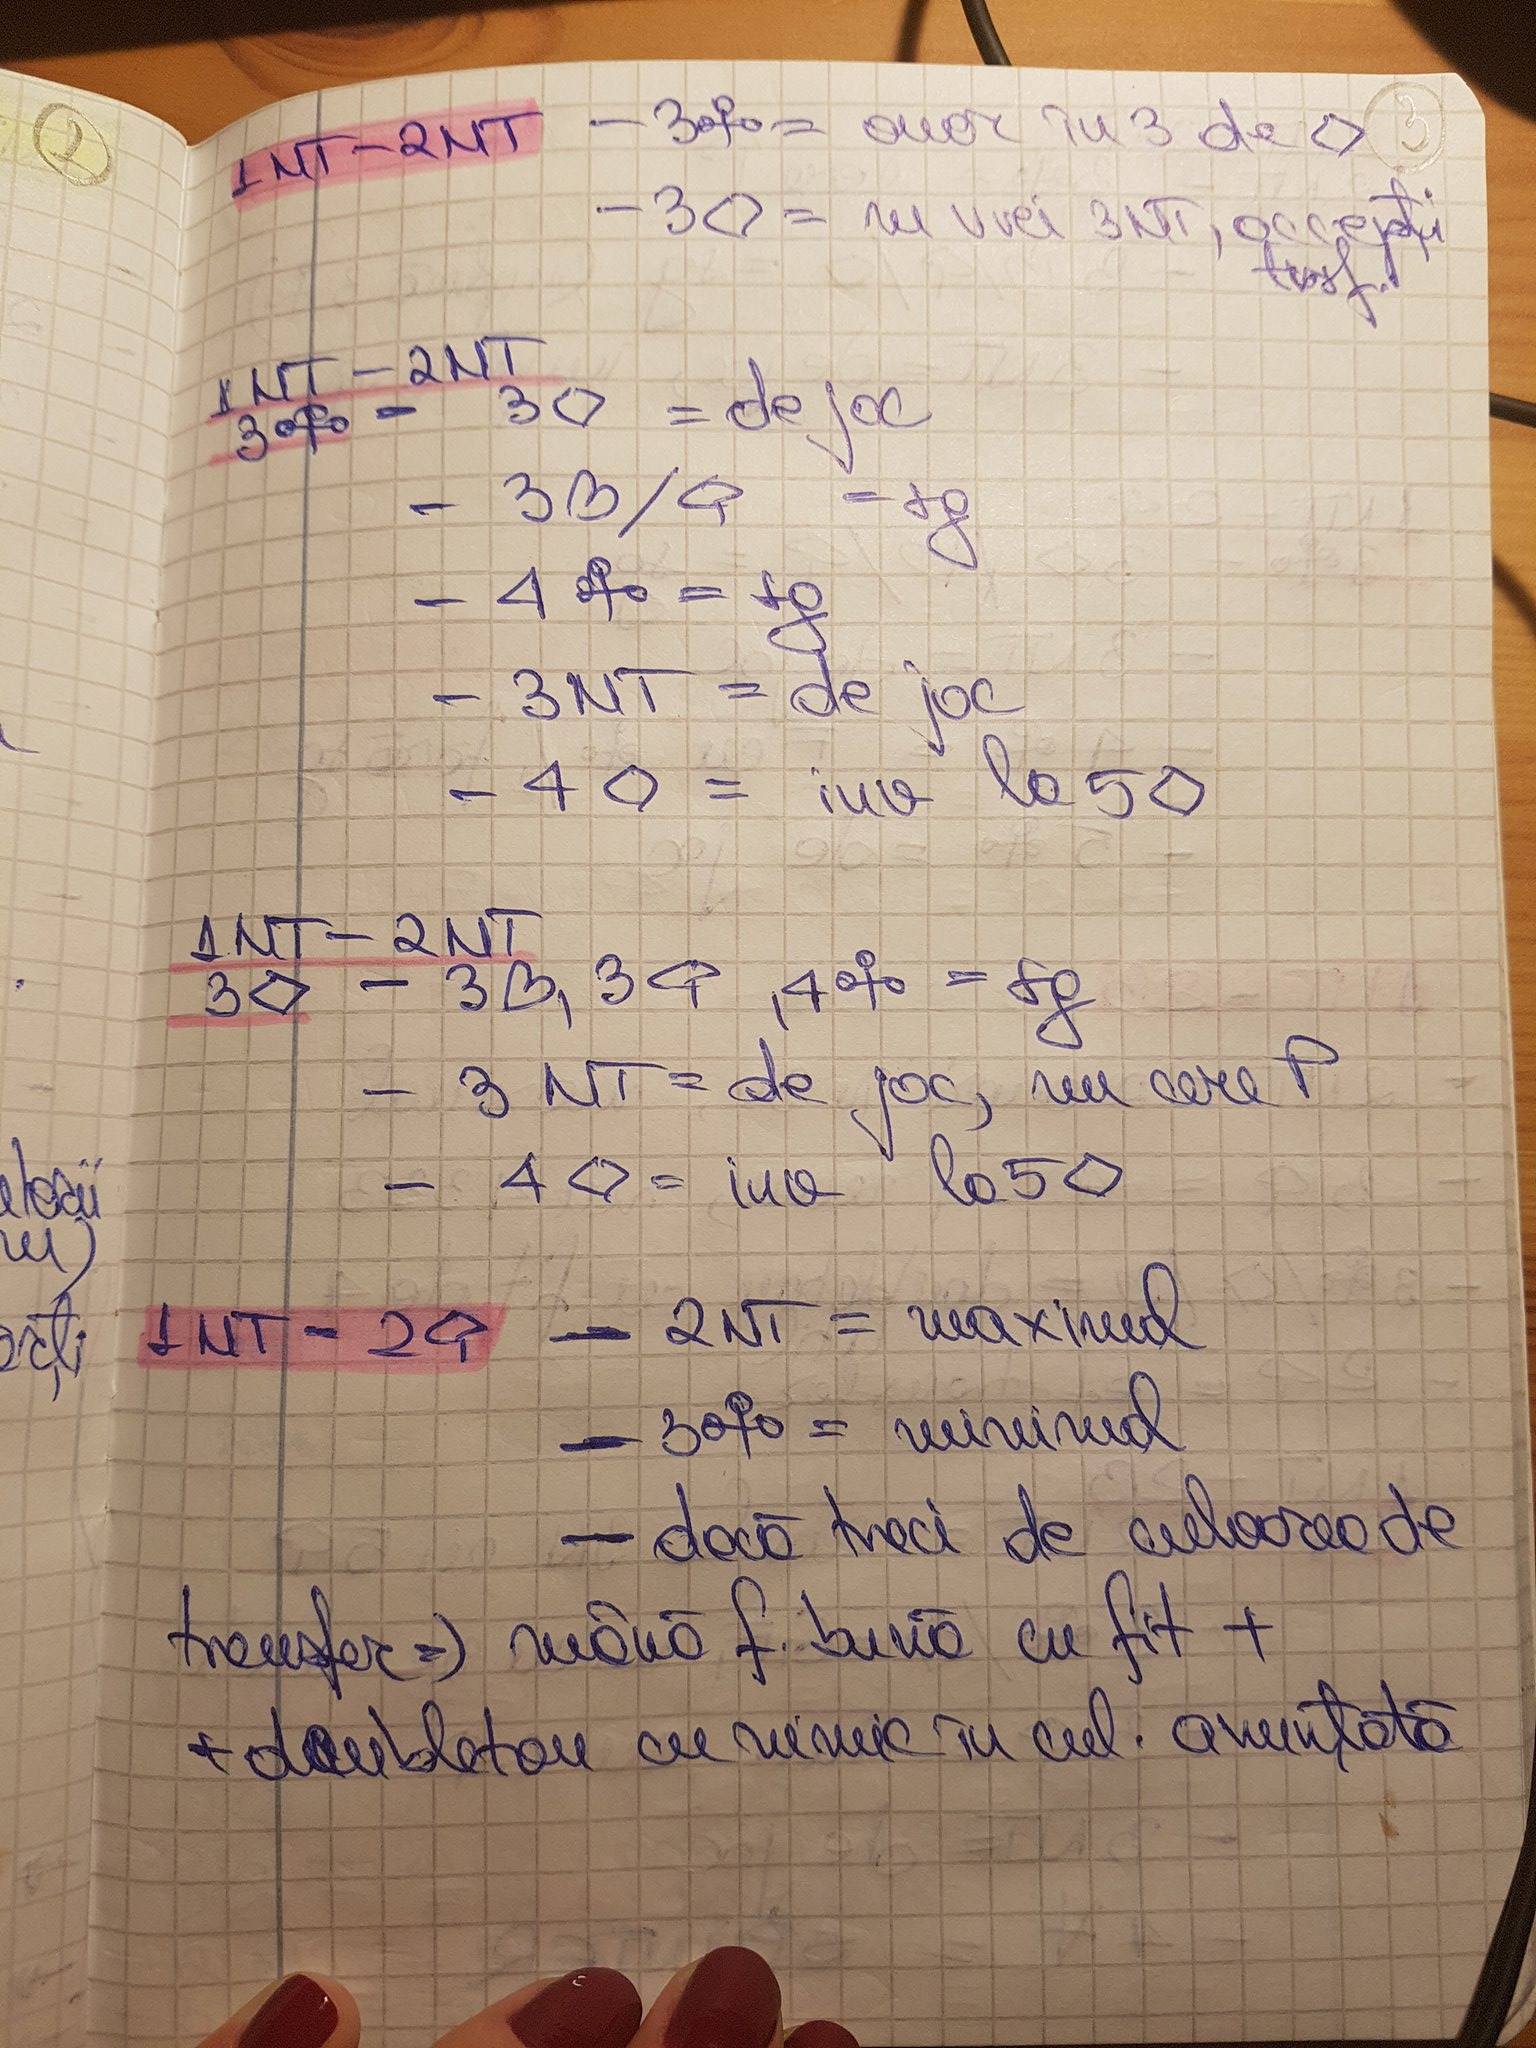 2
3
1NT-2NT - 3♣ = onor în 3 de ♢
- 3♢ = nu vrei 3NT, accepți
trasf.
1NT - 2NT
3♣ - 3♢ = de joc
- 3♡/♤ - fg
- 4♣ = fg
- 3NT = de joc
- 4♢ = inv la 5♢
1NT - 2NT
3♢ - 3♡, 3♤, 4♣ = fg
- 3NT = de joc, nu cere P
- 4♢ = inv la 5♢
1NT - 2♤ - 2NT = maximul
- 3♣ = minimul
- dacă treci de culoarea de
transfer => mână f. bună cu fit +
+ doubleton cu nimic în cul. anunțată